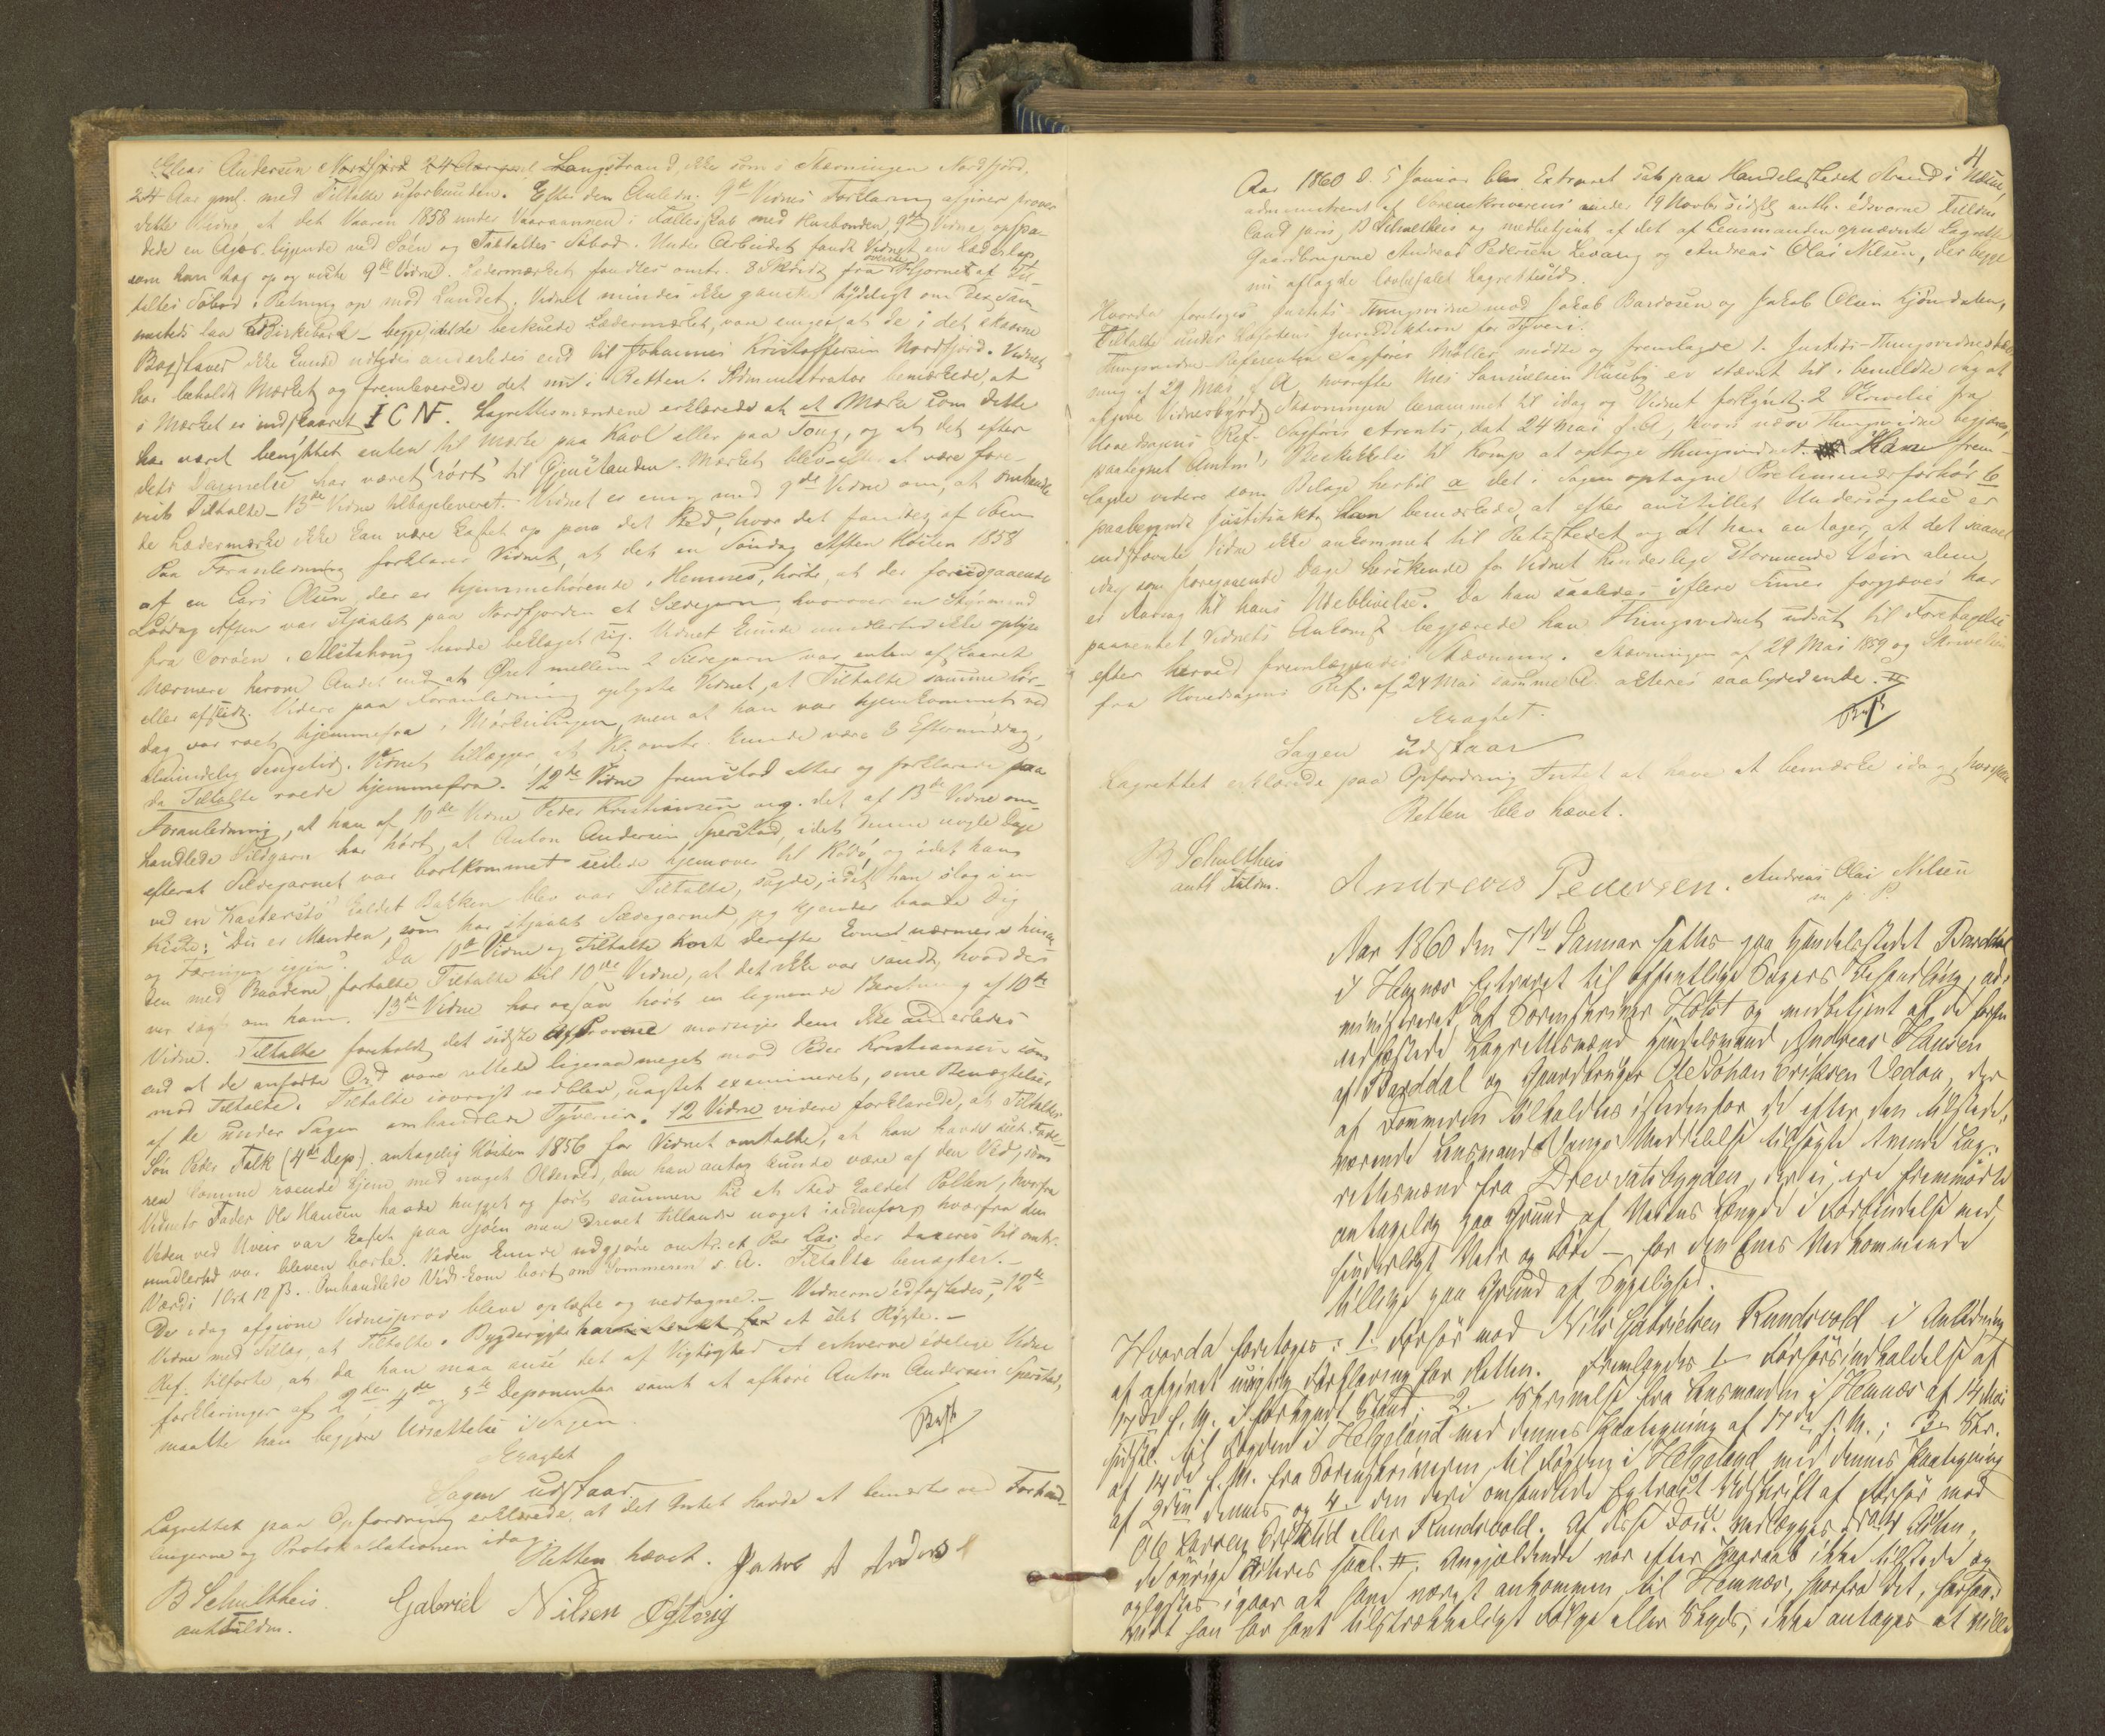 Elias Andersen Nordfjord 24 Aar gml Langstrand, ikke som i Stævningen Nordfjord,
24 Aar gml. med Tiltalte uforbunden. Efter den Anledn. 9de Vidnes Forklaring afgiver prover
dette Vidne, at det Vaaren 1858 under Vaaraannen i Fællesskab med Husbonden, 9de Vidne, opspa-
dede en Ager liggende ved Söen og Tiltaltes Stöbod. Under Arbeidet fandt Vidnet en Læderlap,
som han tog op og viste 9de Vidne. Ledermærket fandtes omtr. 3 Skridt fra øverste Hjornet af Til-
taltes Söbod i Retning op mod Landet. Vidnet mindes ikke ganske tydeligt om der sam-
mesteds laa Birkebark - begge, idet de beskuede Ledermærket, vare enige, at de i det skaarne
Bogstaver ikke kunde udtydes anderledes end til Johannes Kristoffersen Nordfjord. Vidnet
har beholdt Mærket og fremleverede det nu i Retten. Administrator bemærkede, at
i Mærket er indskaaret I C N. Lagrettesmændene erklærede at et Mærke som dette
har været benyttet enten til Mærke paa Kavl eller paa Toug, og at det efter
dets Dannelse har været rört til Gjenstanden. Mærket blev efter at være fore-
vist Tiltalte - 13de Vidne tilbageleveret. Vidnet er enig med 9de Vidne om, at omhandle
de Ledermærke ikke kan være kastet op paa det Sted, hvor det fandtes, af Söen
Paa Foranledning forklarer Vidnet, at det en Söndag Aften Hösten 1858
af en Lars Olsen, der er hjemmehörende i Hemnes, hörte, at der foregaaende
Löverdag Aften var stjaalet paa Nordfjorden et Sildegarn, hvorover en Styrmand
fra Soröen i Alstahoug havde beklaget sig. Vidnet kunde imidlertid ikke oplyse
nærmere herom Andet end at Öret mellem 2 Sildegarn var enten afskaaret
eller afslidt. Videre paa Foranledning oplyste Vidnet, at Tiltalte samme Lör-
dag var roet hjemmefra i Mörkningen, men at han var hjemkommet ved
almindelig Sengetid. Vidnet tillægger, at Kl. omtr. kunde være 3 Eftermiddag,
da Tiltalte roede hjemmefra. 12te Vidne fremstod atter og forklarede paa
Foranledning, at han af 10de Vidne Peder Kristiansen ang. det af 13de Vidne om-
handlede Sildgarn har hört, at Anton Andersen Sperstad, idet denne nogle Dage
efterat Sildegarnet var bortkommet seilede hjemover til Rödö, og idet han
ved en Kastestö kaldet Bakken blev var Tiltalte, sagde, idet han slog i en
Kiste: "Du er Manden, som har stjaalet Sildegarnet, jeg kjender baade Dig
og Færingen igjen". Da 10de Vidne og Tiltalte kort derefter kom nærmere hinan
den med Baadene fortalte Tiltalte til 10de Vidne, at det ikke var sandt, hvad der
var sagt om ham. 13de Vidne har ogsaa hört en lignende Beretning af 10de
Vidne. Tiltalte foreholdt det sidste Afprovene modsiger dem ikke anderledes
end at de anförte Ord vare rettede ligesaameget mod Peder Kristiansen som
mod Tiltalte. Tiltalte iövrigt vedblev, uagtet examineret, sine Benægtelser
af de under Sagen omhandlede Tyverier. 12 Vidne videre forklarede, at Tiltaltes
Sön Peder Falk (4de Dep) antagelig Hösten 1856 for Vidnet omtalte, at han havde seet Fade-
ren komme roende hjem med noget Olderved, den han antog kunde være af den Ved, som
Vidnets Fader Ole Hansen havde hugget og fört sammen til et Sted kaldet Pollen, hvorfra
Veden ved Uveir var kastet paa Sjöen men drevet tillands noget indenfor, hvorfra den
imidlertid var bleven borte. Veden kunde udgjöre omtr. et Par Læs, der taxeres til omtr.
Værdi 1 Ort 12 ß. Omhandlede Ved kom bort om Sommeren s. A. Tiltalte benægter. -
De idag afgivne Vidnesprov bleve oplæste og vedtagne. - Vidnerne edfæstedes, 12te
Vidne med Tillæg, at Tiltalte i Bygderygte et slet Rygte. -
Ref. tilförte, at da han maa anse det af Vigtighed at erhverve edelige Vidne
forklaringer af 2den, 4de og 5te Deponenter samt at afhöre Anton Andersen Sperstad,
maatte han begjære Udsættelse i Sagen.
Eragtet
Sagen udstaar.
Lagrettet paa Opfordring erklærede, at det Intet havde at bemærke ved Forhand-
lingerne og Protokollationen idag.
Retten hævet. Jakob A Anders
B Schultheis. Gabriel Nilsen
auth Fuldm.
4
Aar 1860 d. 5 Januar blev Extraret sat paa Handelsstedet Strand i Nesne,
administreret af Sorenskriverens under 19 Novbr sidstl. auth. edsvorne Fuldm.
Cand. juris, B Schultheis og medbetjent af det af Lensmanden opnævnte Lagrette
Gaardbrugerne Andreas Pedersen Levang og Andreas Olai Nilsen, der begge
nu aflagde lovbefalet Lagretteseed.
Hvorda foretoges Justits-Thingsvidne mod Jakob Bardosen og Jakob Olsen Kjöndalen,
Tiltalte under Lofotens Jurisdiktion for Tyveri.
Thingsvidne-Referenten Sagförer Möller mödte og fremlagde 1. Justits-Thingsvidnestæv-
ning af 29 Mai f. A, hvorefter Nils Samuelsen Husby er stævnet til i bemeldte Sag at
afgive Vidnesbyrd, Stævningen berammet til idag og Vidnet forkyndt. 2 Skrivelse fra
Hovedsagens Ref. Sagförer Arentz, dat 24 Mai f. A, hvori nærv. Thingsvidne begjæres,
paategnet Amtm's Beskikkelse til Komp. at optage Thingsvidnet. Han frem-
lagde videre som Bilage hertil a det i Sagen optagne Preliminærforhör b
paabegyndt Justitsakt. Han bemærkede, at efter anstillet Undersögelse er
indstævnte Vidne ikke ankommet til Retsstedet og at han antager, at det saavel
idag som foregaaende Dage herskende for Vidnet hinderlige stormende Veir alene
er Aarsag til hans Udeblivelse. Da han saaledes i flere Timer forgjæves har
paaventet Vidnets Ankomst begjærede han Thingsvidnet udsat til Foretagelse
efter herved fremlæggendes Stævning. Stævningen af 29 Mai 1859 og Skrivelsen
fra Hovedsagens Ref. af 24 Mai samme A. akteres saalydende.
Eragtet.
Sagen udstaar
Lagrettet erklærede paa Opfordring Intet at have at bemærke idag, hvorefter
Retten blev hævet.
B Schultheis
auth Fuldm.
Andreas Pedersen. Andreas Olai Nilsen
m. p. P.
Aar 1860 den 7de Januar sattes paa Handelsstedet Bardal
i Hemnæs Extraret til offentlige Sagers Behandling, ad-
ministreret af Sorenskriver Holst og medbetjent af de forhen
edfæstede Lagrettesmænd Handelsmand Andreas Hansen
af Barddal og Gaardbruger Ole Johan Eriksen Vedaa, der
af Dommeren tilkaldtes istedenfor de efter den tilstede-
værende Lensmand Meddelelse tilsagte tvende Lag-
rettesmænd fra Drevvatsbygden, der ei ere fremmödte
antagelig paa Grund af Veiens Længde i Forbindelse med
hinderligt Veir og Före - for den Enes Vedkommende
tillige paa Grund af Sygelighed.
Hvorda foretoges: 1. Forhör mod Nils Gabrielsen Rundsvold i Anledning
af afgivet urigtig Forklaring for Retten. Fremlagdes 1 Forhörsindkaldelse af
17de f. M. i forkyndt Stand; 2. Skrivelse fra Lensmanden i Hemnæs af 14 Mai
sidstl. til Fogden i Helgeland med dennes Paategning af 17de s. M.; 3 Skr.
af 14de f. M. fra Sorenskriveren til Fogden i Helgeland med dennes Paategning
af dennes og 4. den deri omhandlede Extract Udskrift af Forhör mod
Ole Larsen eller Rundsvold. Af disse Dok. vedlægges Akten,
de övrige akteres saal. Angjældende var efter Paaraab ikke tilstede og
oplystes igaar at have været ankommen til Hemnæs, hvorfra det, forsaa-
vidt han har havt tilstrækkeligt Fölge eller Skyds, ikke antages at ville